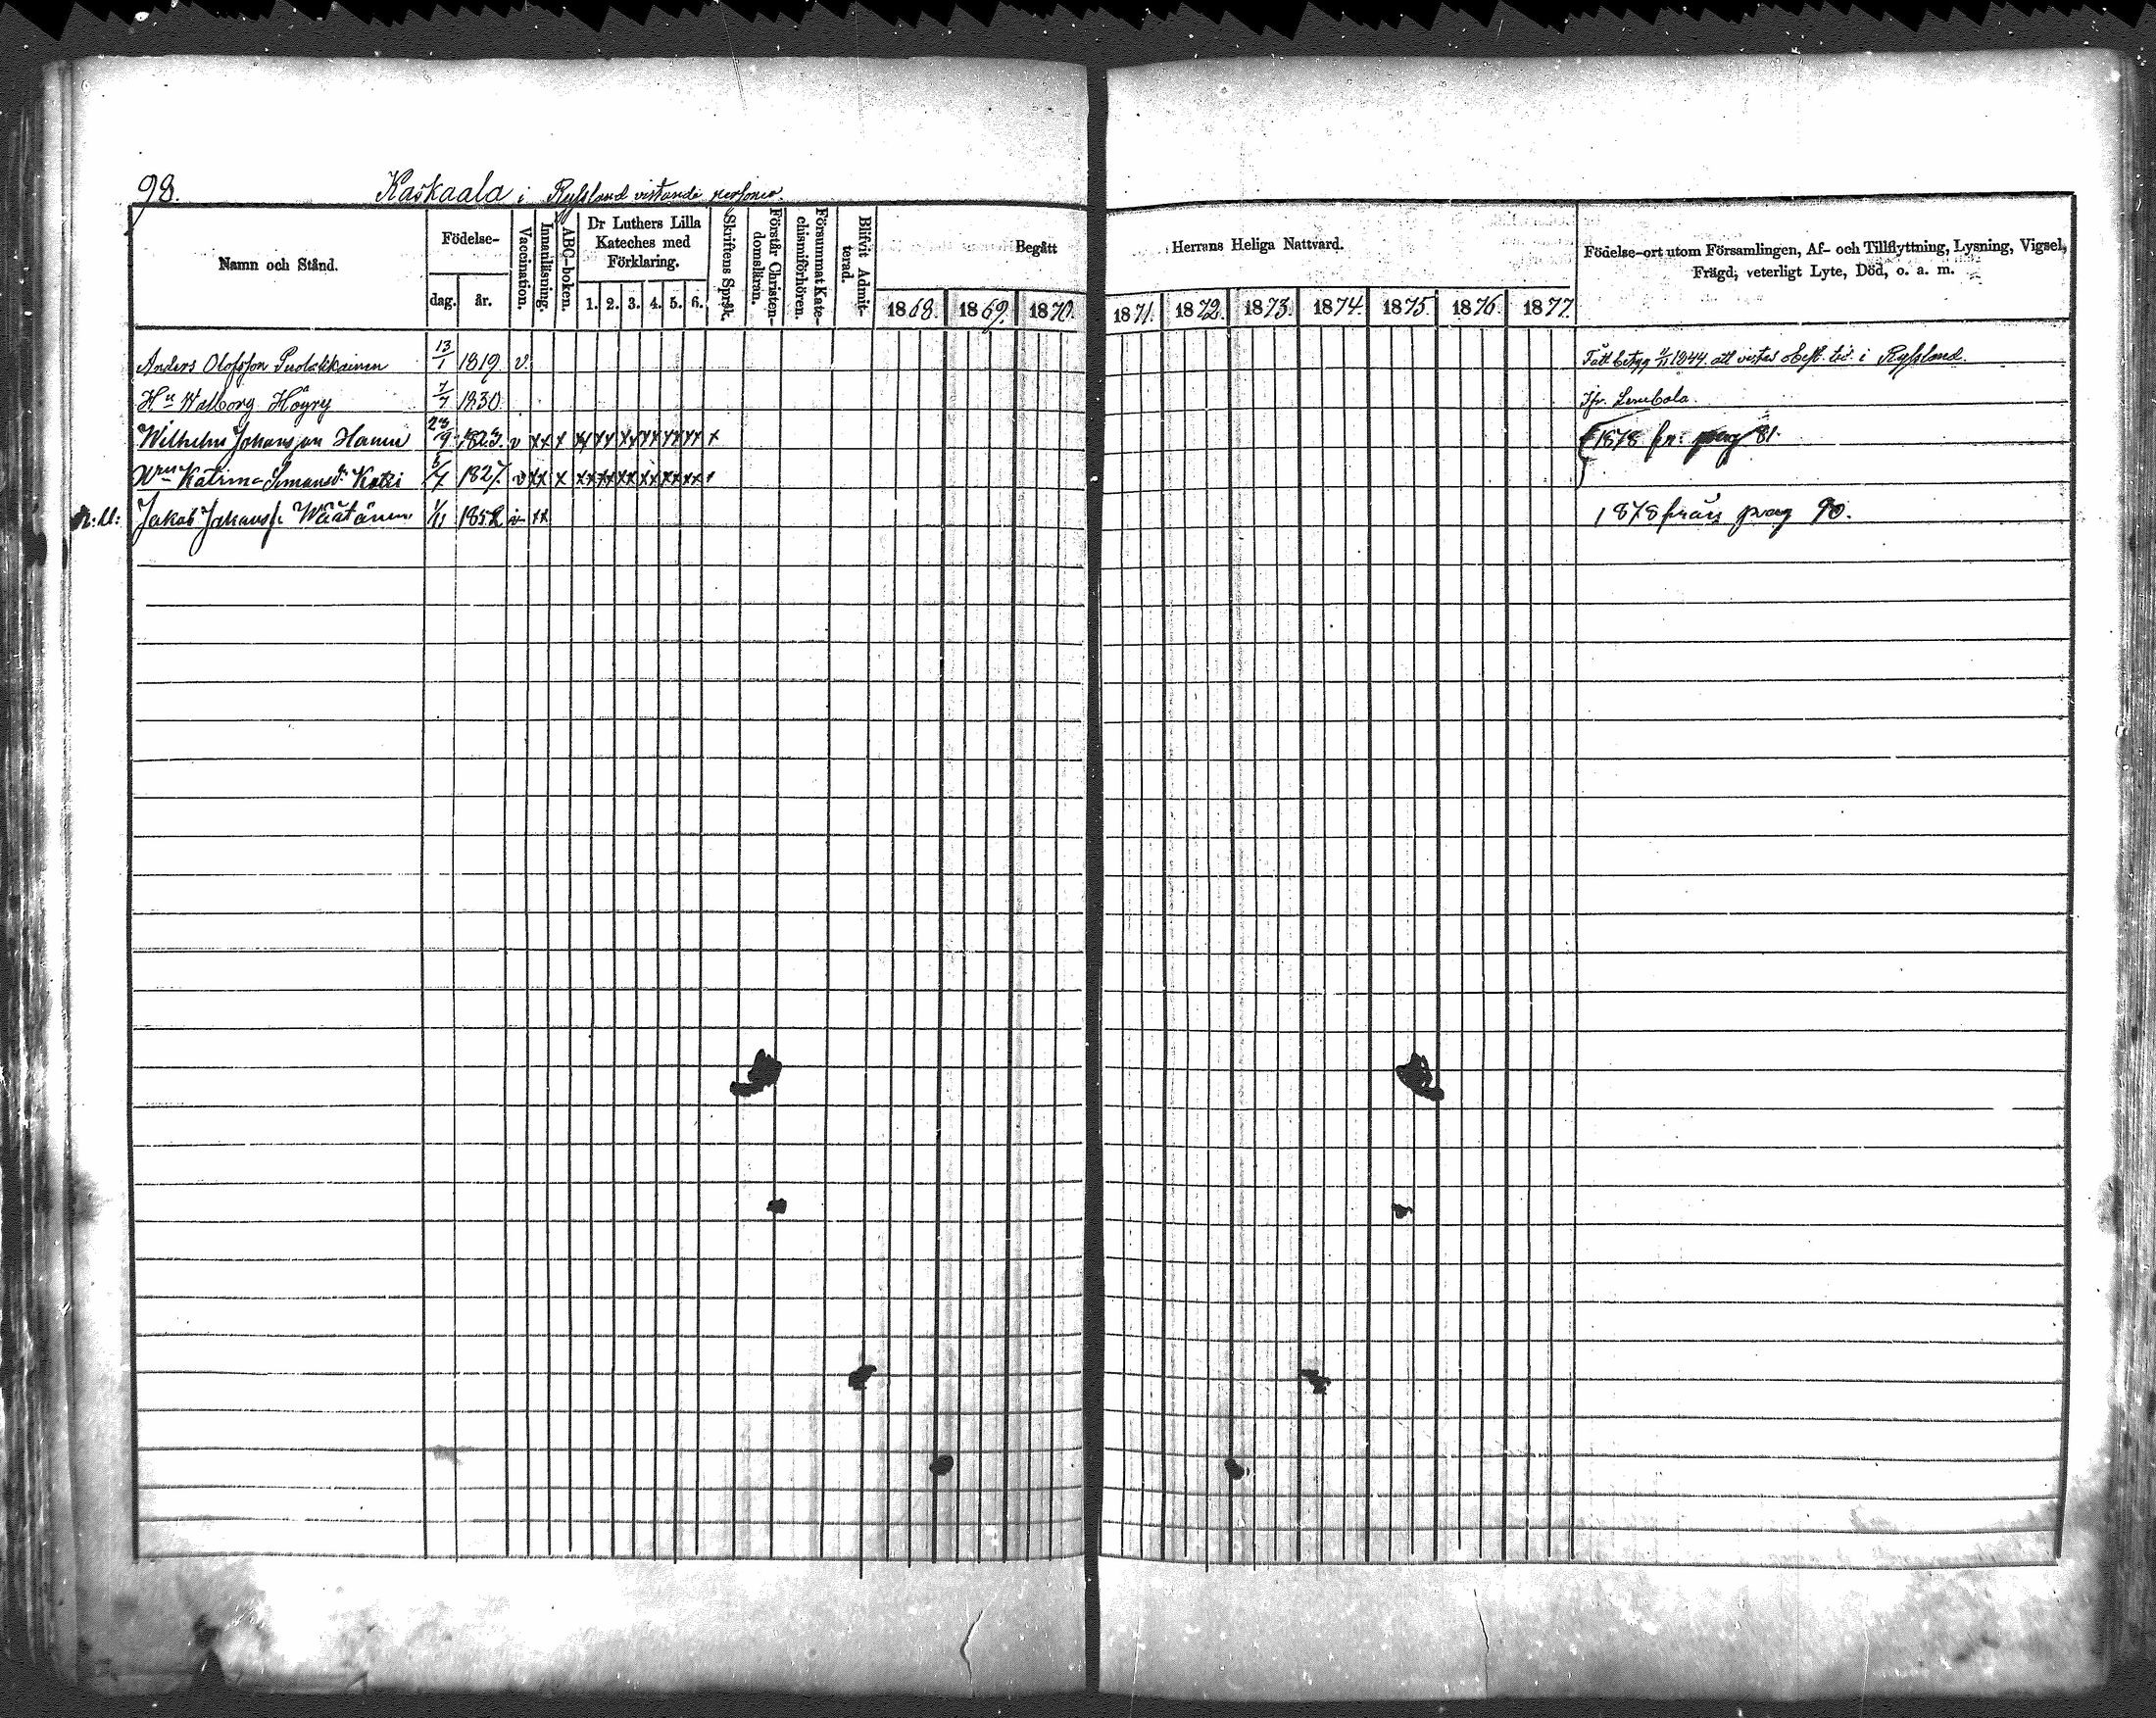 98. Kaskaala i Ryssland vistande personer.
Namn och Stånd.
Födelse-
dag. år.
Vaccination.
Innanläsning.
ABC-boken.
Dr Luthers Lilla
Kateches med
Förklaring.
1. 2. 3. 4. 5. 6.
Skriftens Språk.
Förstår Christen-
domslärän.
Försummat Kate-
chismiförhören.
Blifvit Admit-
terad.
Begått Herrans Heliga Nattvard.
1868. 1869. 1870. 1871. 1872. 1873. 1874. 1875. 1876. 1877.
Födelse-ort utom Församlingen, Af- och Tillflyttning, Lysning, Vigsel,
Frägd, veterligt Lyte, Död, o. a. m.
Anders Olofsson Puolakkainen 13/1 1819. v. Fått betyg 1844 att vistas i Ryssland.
Hu Walborg Höyry 7/7 1830 Jfr. Lembala.
Wilhelm Johansson 23/9 1823. v xx x xx xx xx xx xx xx x 1878 fr: pag 81.
Katrina Simonsdr 1827. v xx x xx xx xx xx xx xx
Jakob Johanss. Väätäinen 1/11 1852 v xx 1878 från pag 90.